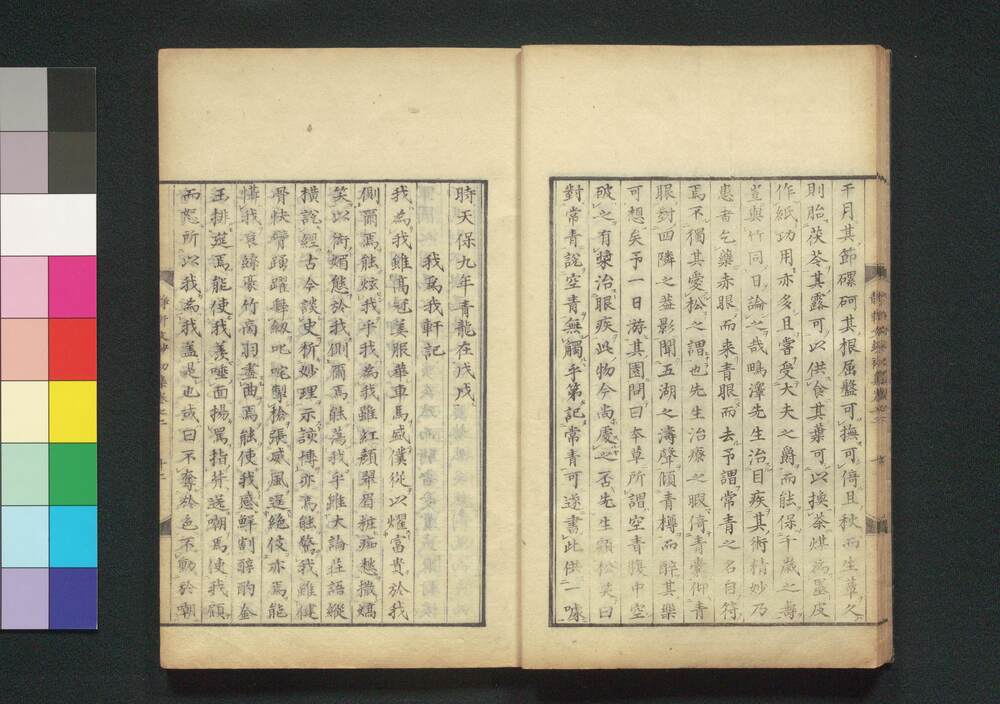 干月其節磥砢其根屈盤可撫可倚且秋而生蕈久
則胎茯苓其露可以供食其葉可以換茶煤為墨皮
作紙功用亦多且嘗受大夫之爵而能保千歲之壽
豈與竹同日論之哉鴨澤先生治目疾其術精妙乃
患者乞藥赤眼而来青眼而去予謂常青之名自符
焉不獨其愛松之謂也先生治療之暇倚青棠仰青
眼對四隣之益影聞五湖之濤聲傾青樽而醉其樂
可想矣予一日游其園問曰本草所謂空青腹中空
破之有漿治眼疾此物今尚處之否先生顧松笑曰
對常青說空青無觸乎第記常青可遂書此供一噱
時天保九年青龍在戊戌
我為我軒記
我為我雖高冠美服華車馬盛僕從以燿富貴於我
側爾焉能炫我乎我為我雖紅顏翠眉粧癡越撒嬌
笑以衒媚態於我側爾焉能蕩我乎雖大論荘語縱
橫說經古今談史析妙理示該博亦焉能驚我雖健
骨快臂踊躍舞劔叱咤擊槍張威風逞絕伎亦焉能
慴我哀絲豪竹商羽盡曲焉能使我感鮮割醇酌金
玉排莚焉能使我羨唾面揚罵指斥送嘲焉使我顧
而怒所以我為我蓋是也或曰不奪於色不動於嘲